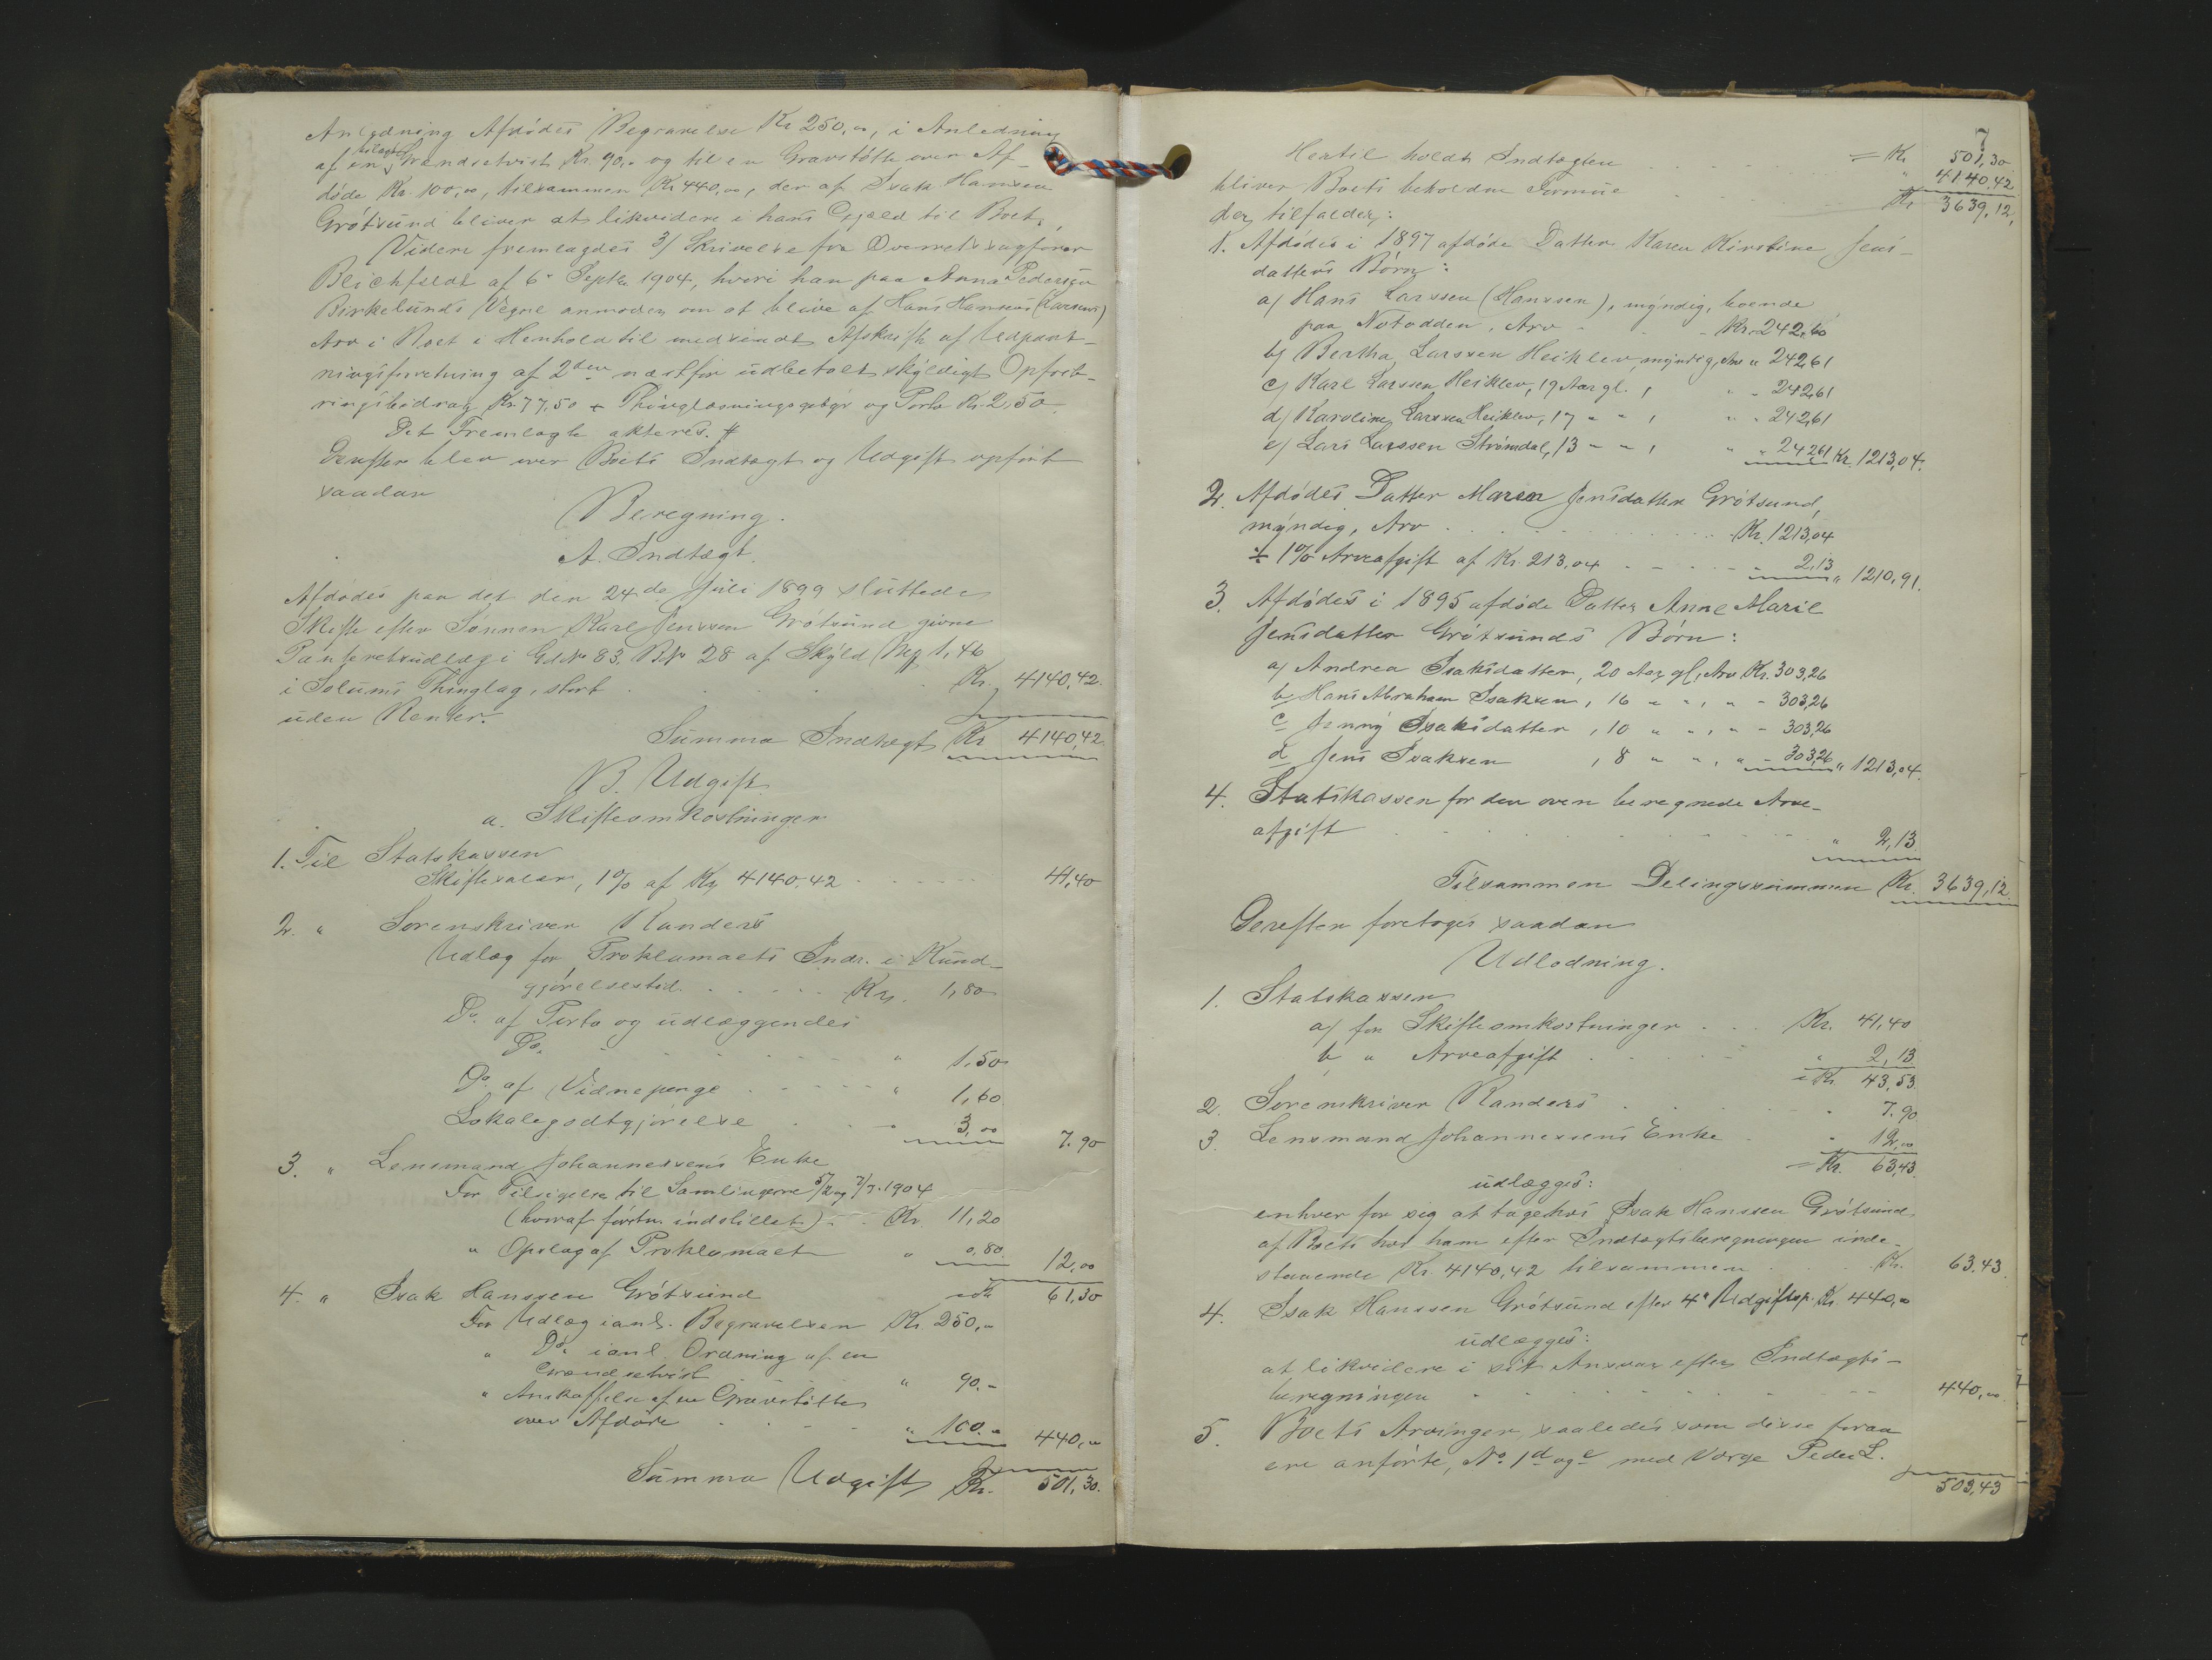 Anledning Afdødes Begravelse Kr 250,00, i Anledning
af en bilagt Grændsetvist Kr. 90,- og til en Gravstøtte over Af-
døde Kr. 100,00, tilsammen Kr 440,00, der af Isak Hanssen
Grøtsund bliver at likvidere i hans Gjæld til Boet.
Videre fremlagdes 3/ Skrivelse fra Overretssagfører
Blichfeldt af 6. Septbr. 1904, hvori han paa Anna Pedersen
Birkelunds Vegne anmoder om at blive af Hans Hansens (Larsens)
Arv i Boet i Henhold til medsendt Afskrift af Udpant-
ningsforretning af 2den næstfør udbetalt skyldigt Opfost-
ringsbidrag Kr. 77,50 + Thinglæsningsgebyr og Porto Kr. 2,50.
Det Fremlagte akteres. #
Derefter blev over Boets Indtægt og Udgift opført
saadan
Beregning.
A. Indtægt.
Afdødes paa det den 24de Juli 1899 sluttede
Skifte efter Sønnen Karl Jenssen Grøtsund givne
Panteretsudlæg i Gd. No 83, B.No 28 af Skyld Mk 1,46
i Solums Thinglag, stort . . . Kr. 4140,42.
uden Renter.
Summa Indtægt Kr 4140,42.
B. Udgift.
a. Skifteomkostninger
1. Til Statskassen
Skiftesalær, 1% af Kr 4140.42 - - - - 41,40
2. " Sorenskriver Randers
Udlæg for Proklamaets Indr. i Kund-
gjørelsestid. . . . . . Kr. 1,80
Do. af Porto og udlæggendes
Do. - - - - - - " 1,50
Do. af Vidnepenge - - - - " 1,60
Lokalegodtgjørelse . . - 3,00 7.90
3. " Lensmand Johannessens Enke
For Tilsigelse til Samlingerne 5/2 og 7/7. 1904
(hvoraf førstn. indstillet) - . Kr. 11,20
" Opslag af Proklamaet " 0,80 12,00
4. " Isak Hanssen Grøtsund = Kr 61,30
For Udlæg i anl. Begravelsen Kr 250,00
" Do. i anl. Ordning af en
Grændsetvist " 90.-
" Anskaffelse af en Gravstøtte
over Afdøde . . - - " 100.- 440,00
Summa Udgift Kr. 501,30.
7
Hertil holdt Indtægten . . . = Kr 501,30
" 4140.42
bliver Boets beholdne Formue . . . Kr 3639,12,
der tilfalder:
1. Afdødes i 1897 afdøde Datter Karen Kirstine Jens-
datters Børn:
a/ Hans Larssen (Hanssen), myndig, boende
paa Notodden, Arv - - - Kr. 242,60
b/ Bertha Larssen Heiklev, myndig, Arv " 242,61
c/ Karl Larssen Heiklev, 19 Aar gl. , " - 242,61
d/ Karoline Larssen Heiklev, 17 - - , " - 242,61
e/ Lars Larssen Strømdal, 13 - - , " " 242,61 Kr. 1213,04.
2. Afdødes Datter Maren Jensdatter Grøtsund,
myndig, Arv . . . . . . Kr. 1213,04
÷ 1% Arveafgift af Kr. 213,04 - - - - 2,13 " 1210,91.
3. Afdødes i 1895 afdøde Datter Anne Marie
Jensdatter Grøtsunds Børn:
a/ Andrea Isaksdatter, 20 Aar gl., Arv Kr. 303,26
b/ Hans Abraham Isaksen, 16 " ", " - 303,26
c Jenny Isaksdatter, 10 " ", " - 303,26
d Jens Isaksen , 8 " ", " - 303,26 " 1213,04.
4. Statskassen for den oven beregnede Arve-
afgift - - - - - - - " 2,13
Tilsammen Delingssummen Kr. 3639,12
Derefter foretoges saadan
Udlodning.
1. Statskassen
a/ for Skifteomkostninger . . . Kr. 41,40
b " Arveafgift . . . . . " 2,13
= Kr. 43,53
2. Sorenskriver Randers . . . . . " 7,90
3 Lensmand Johannessens Enke . . " 12,00
= Kr. 63,43
udlægges:
enhver for sig at tage hos Isak Hanssen Grøtsund
af Boets hos ham efter Indtægtsberegningen inde-
staaende Kr. 4140,42 tilsammen . . . Kr. 63,43
4. Isak Hanssen Grøtsund efter 4. Udgiftsp. Kr. 440,00
udlægges:
at likvidere i sit Ansvar efter Indtægts-
beregningen - - - - - - - 440,00
5. Boets Arvinger, saaledes som disse foran
ere anførte, No 1 d og e med Værge Peder L.
503,43